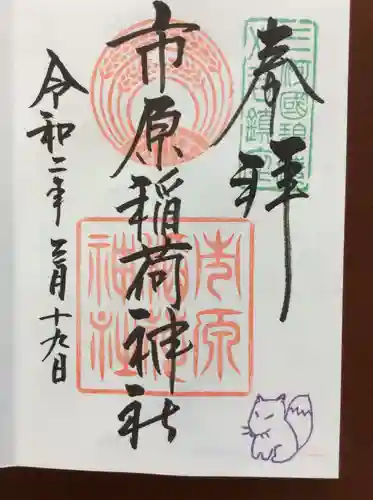 奉拝
三河國碧海
市原稲荷神社
市原
稲荷
神社
令和二年三月十九日